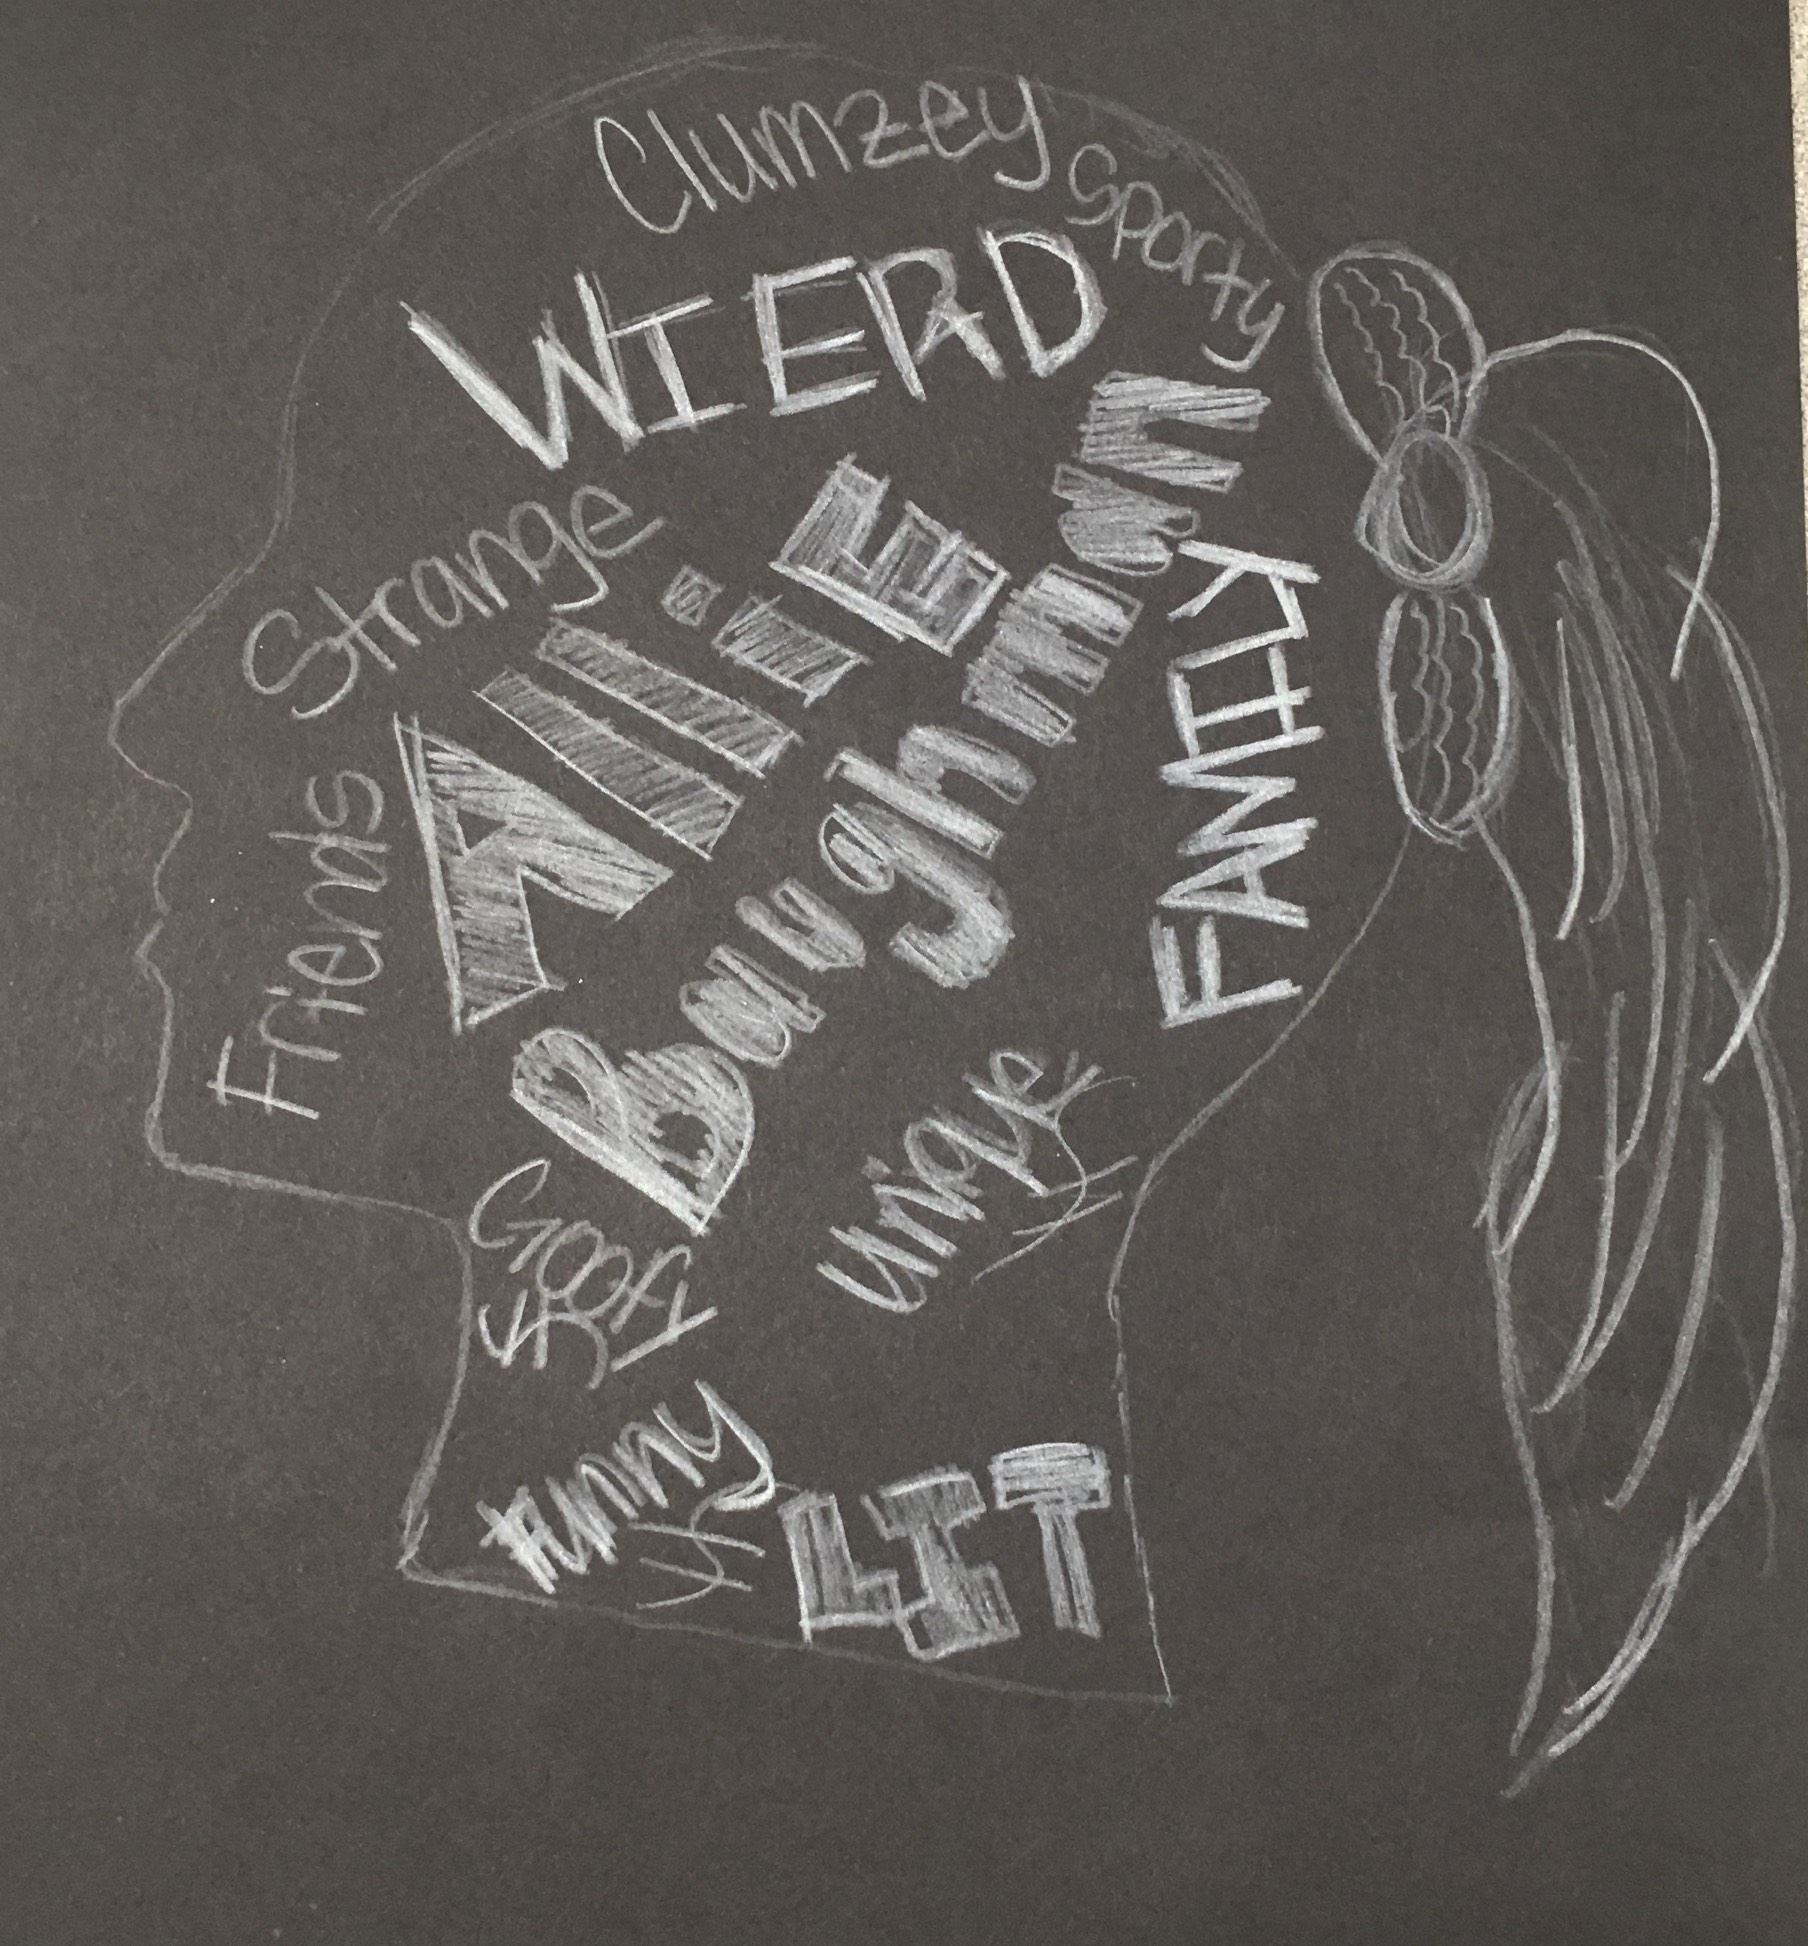 Clumzey
Sporty
WIERD
Strange
Allie
Baughman
Friends
FAMILY
unique
Goofy
funny
LIT